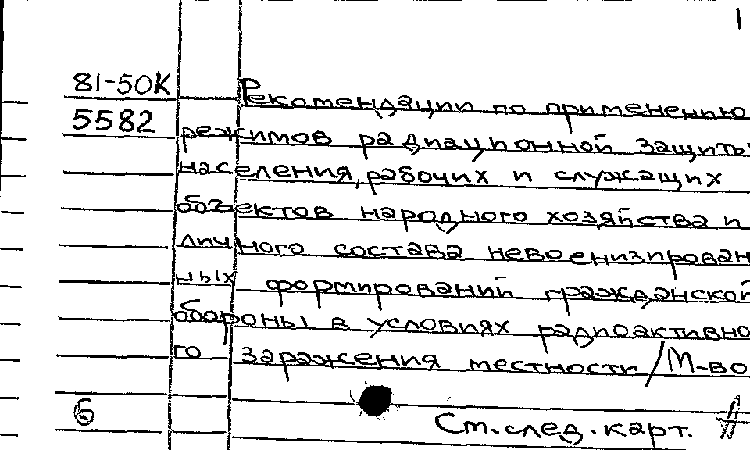 1
81-50К
5582
Рекомендации по применению
режимов радиационной защиты
населения, рабочих и служащих
объектов народного хозяйства и
личного состава невоенизирован
ных формирований гражданской
обороны в условиях радиоактивно
го заражения местности / М-во
Б
См. след. карт.